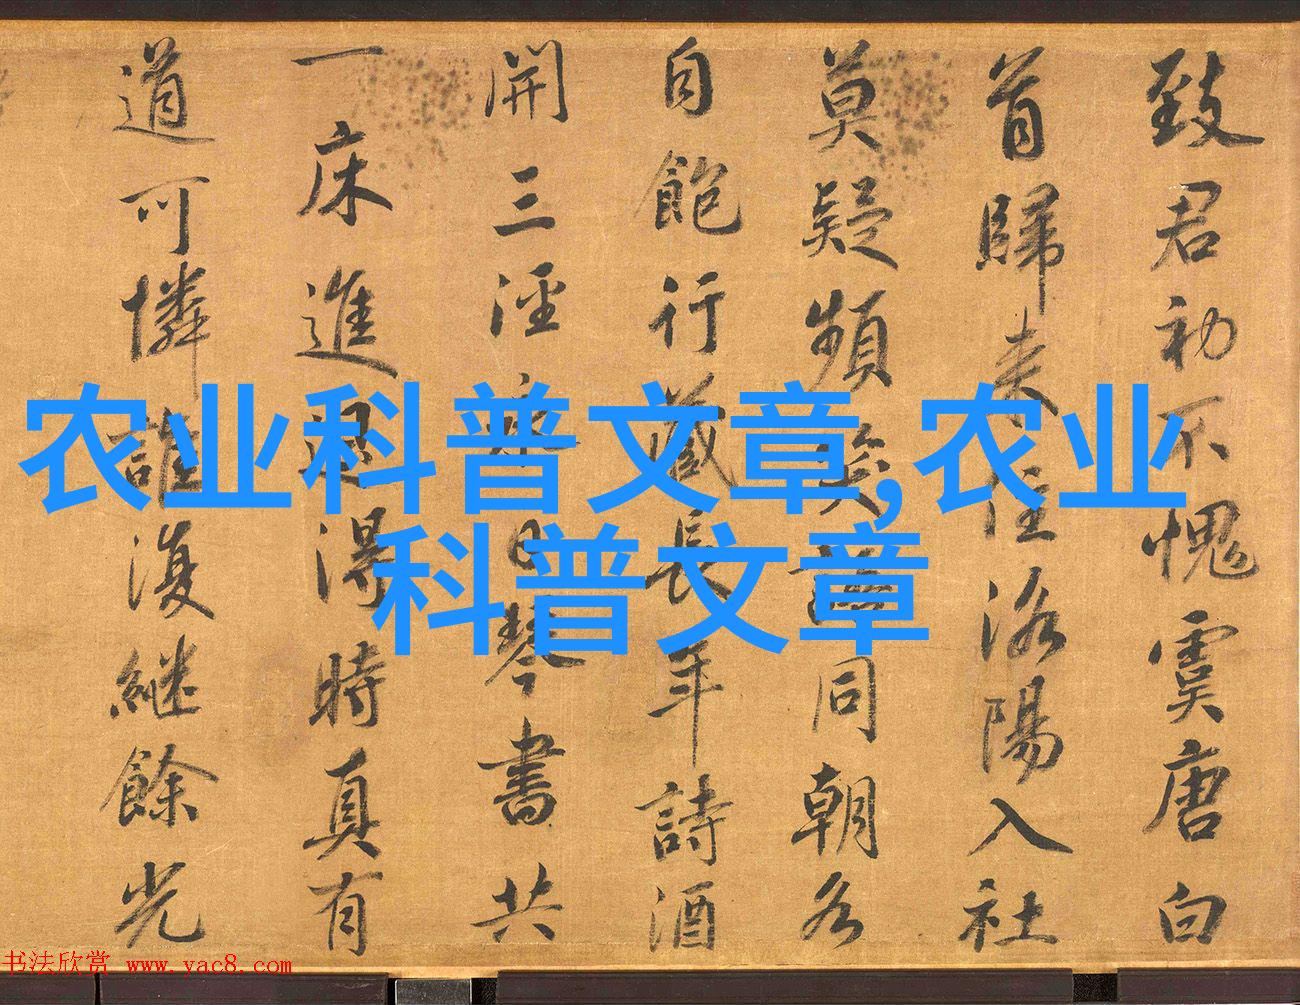 农业科普文章,农业
科普文章
致君初不愧虞唐白
首歸来住洛陽入社
莫疑頻笑同朝各
自飽行藏長年詩酒
開三逕永日琴書共
一床進退得時真有
道可憐誰復継餘光
书法欣赏 www.yac8.com